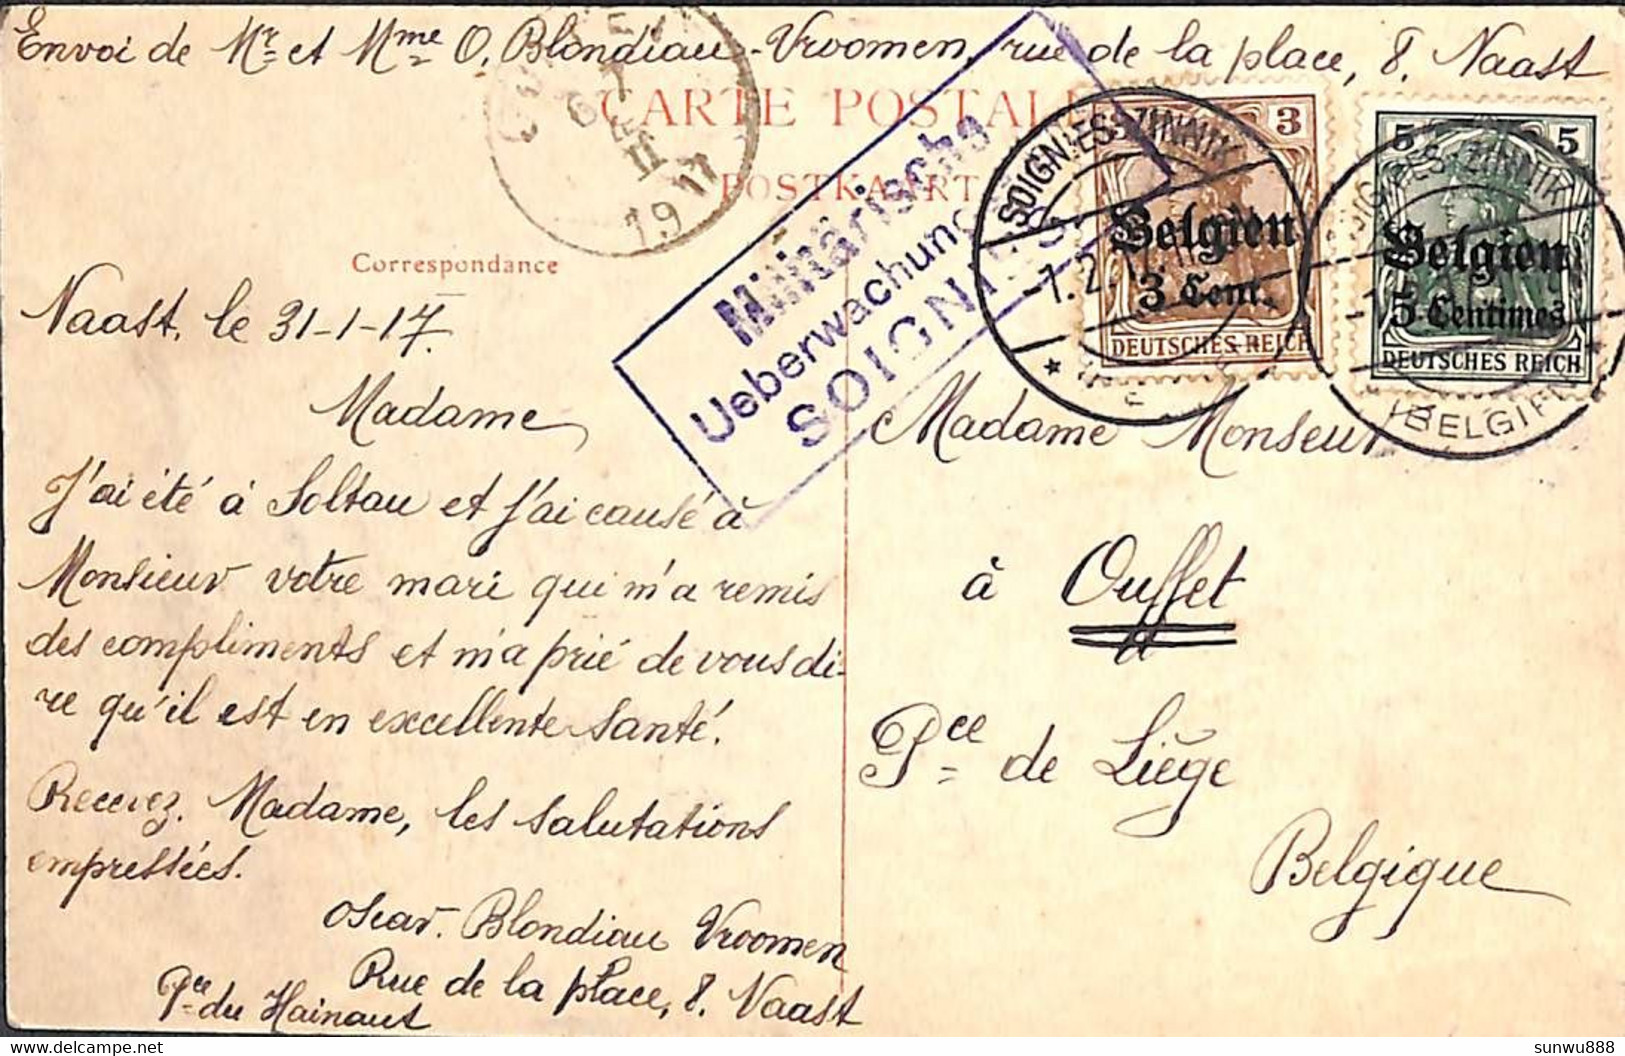 Envoi de Mr et Mme O. Blondiau-Vroomen, rue de la place, 8. Naast
CARTE POSTALE
POSTKAART
Correspondance
Militärische
Ueberwachung
SOIGNIES
6
II
19 17
SOIGNIES-ZINNIK
1.2.17
3
Belgien
3 Cent.
DEUTSCHES REICH
SOIGNIES-ZINNIK
(BELGIEN)
5 5
Belgien
5 Centimes
DEUTSCHES REICH
Naast, le 31-1-17.
Madame,
J'ai été à Soltau et j'ai causé à
Monsieur votre mari qui m'a remis
des compliments et m'a prié de vous di-
re qu'il est en excellente santé.
Recevez. Madame, les salutations
empressées.
Oscar. Blondiau Vroomen
Rue de la place, 8. Naast
Pce du Hainaut
Madame Monseur
à Ouffet
Pce de Liège
Belgique
sunwu888